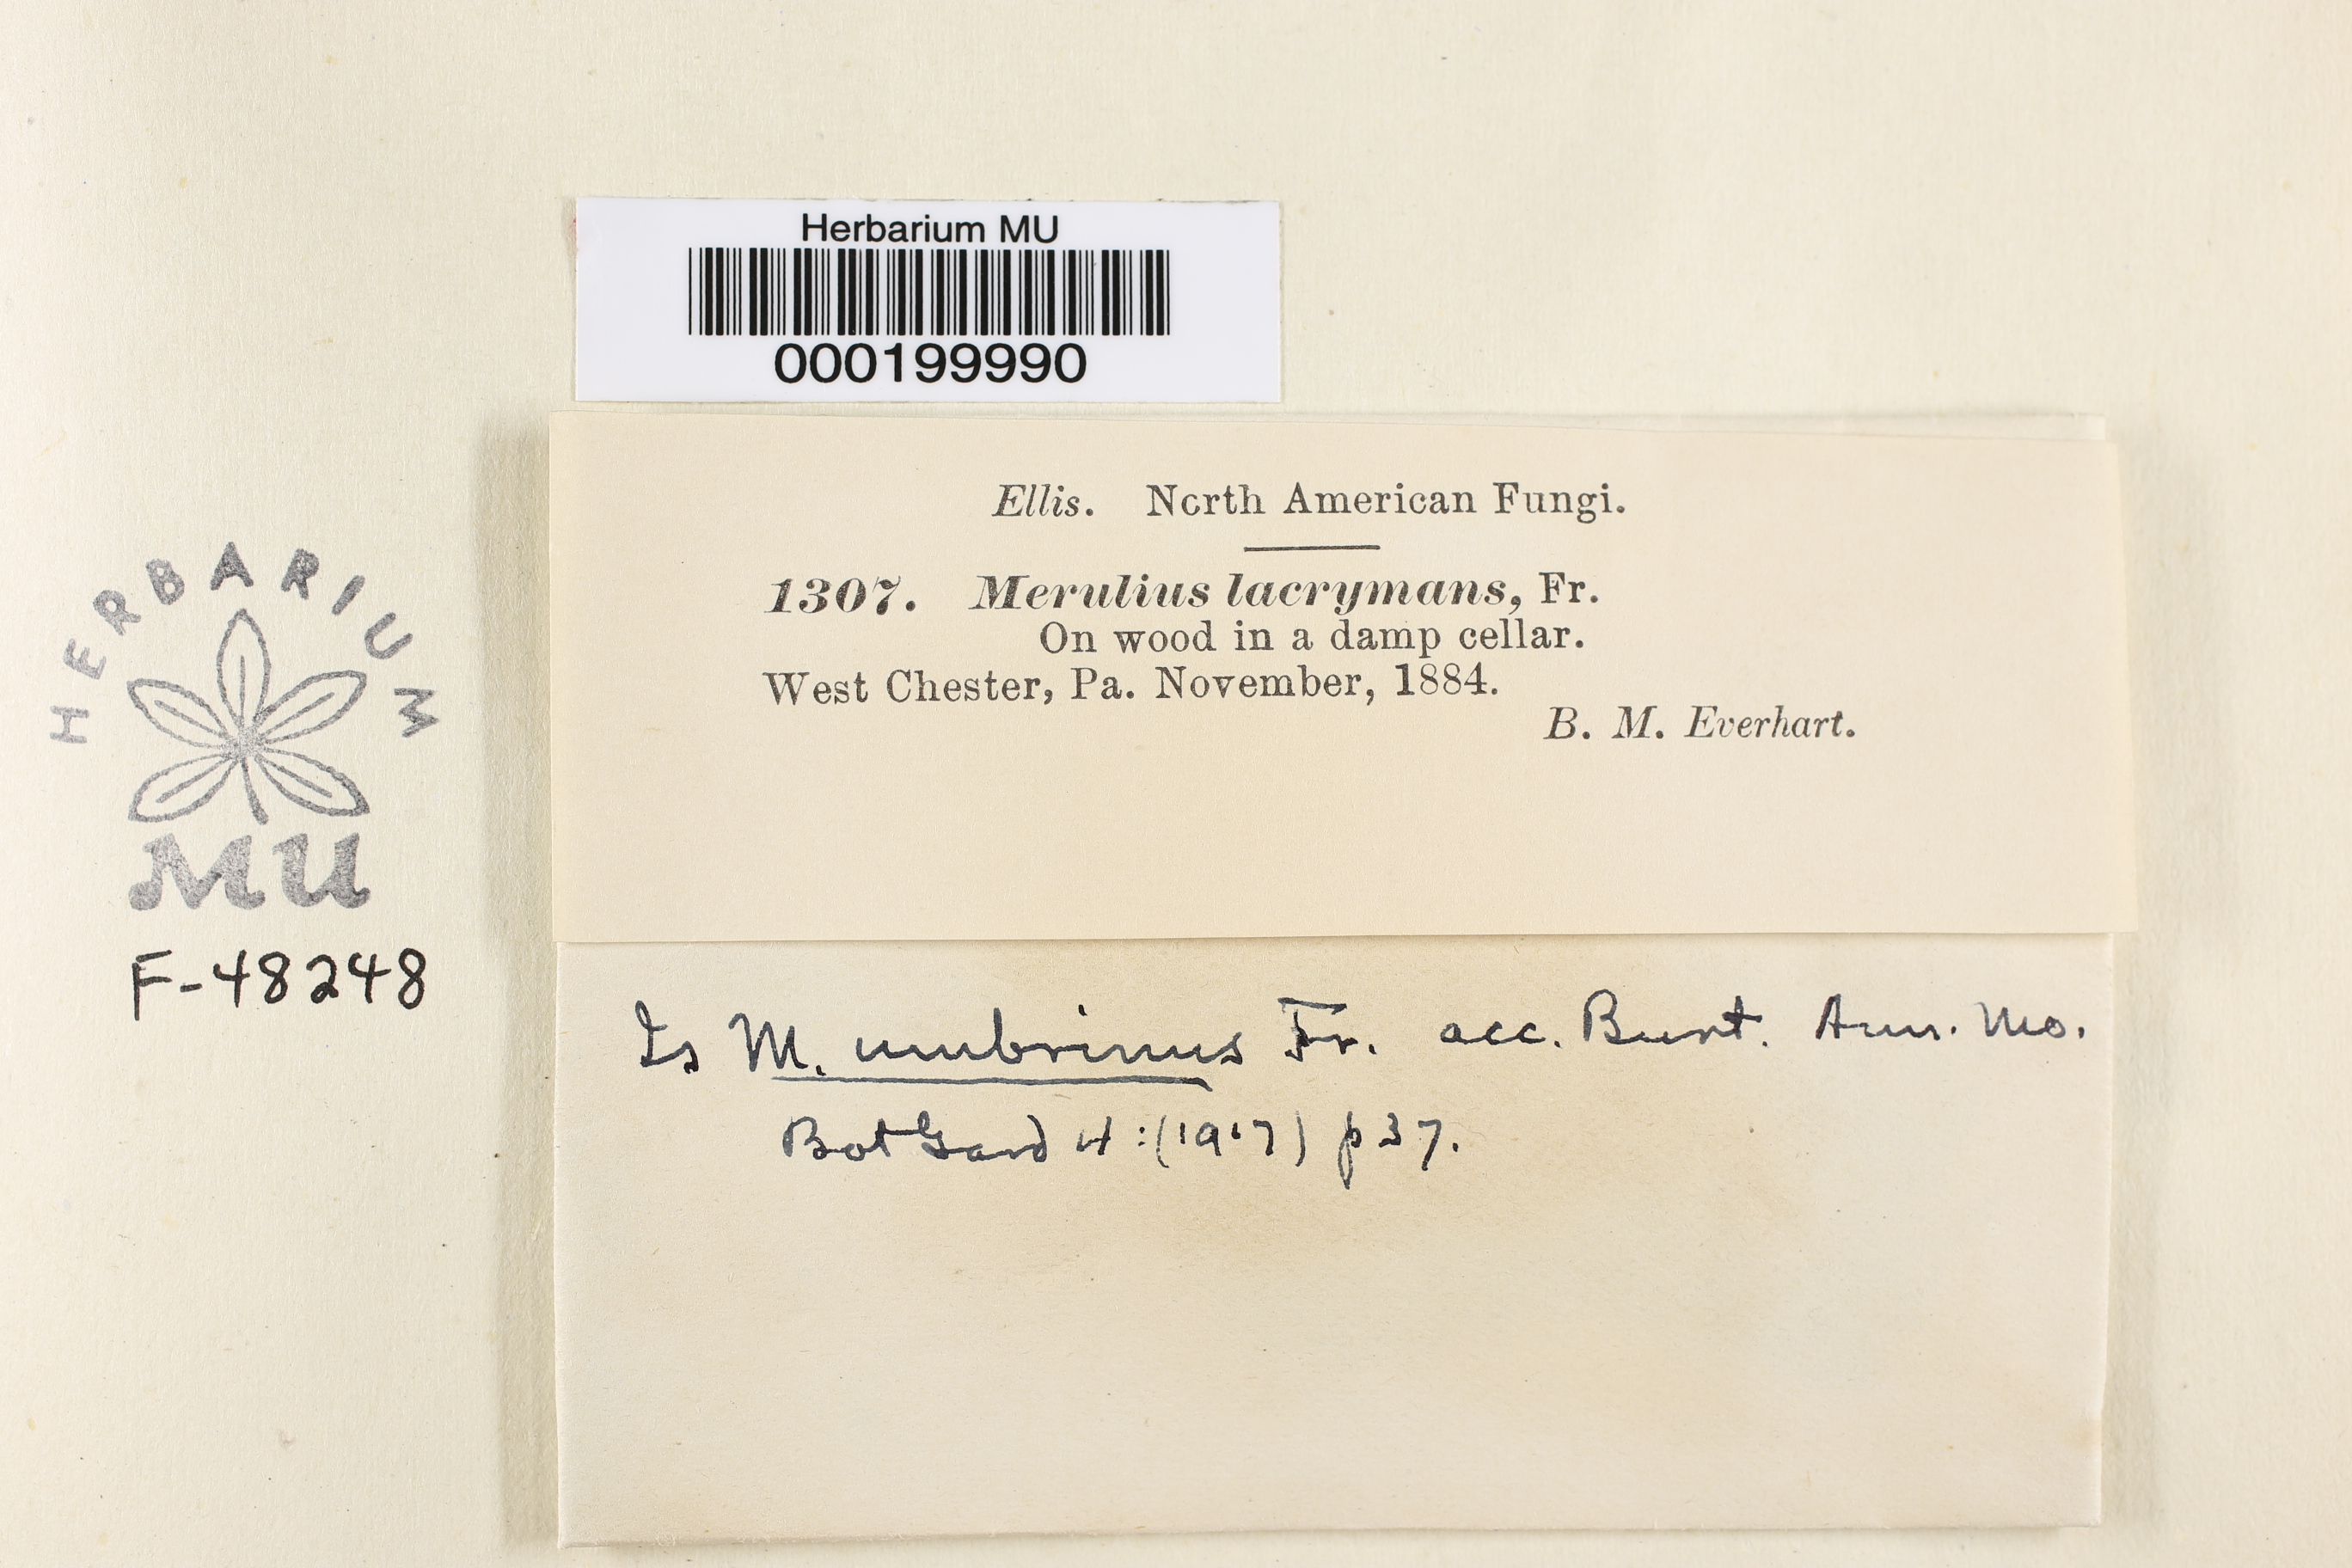 Herbarium MU
000199990
Ellis. North American Fungi.
1307. Merulius lacrymans, Fr.
On wood in a damp cellar.
West Chester, Pa. November, 1884.
B. M. Everhart.
HERBARIUM
MU
F-48248
Is M. umbrinus Fr. acc. Burt. Ann. Mo.
Bot Gard 4:(1917) p 37.